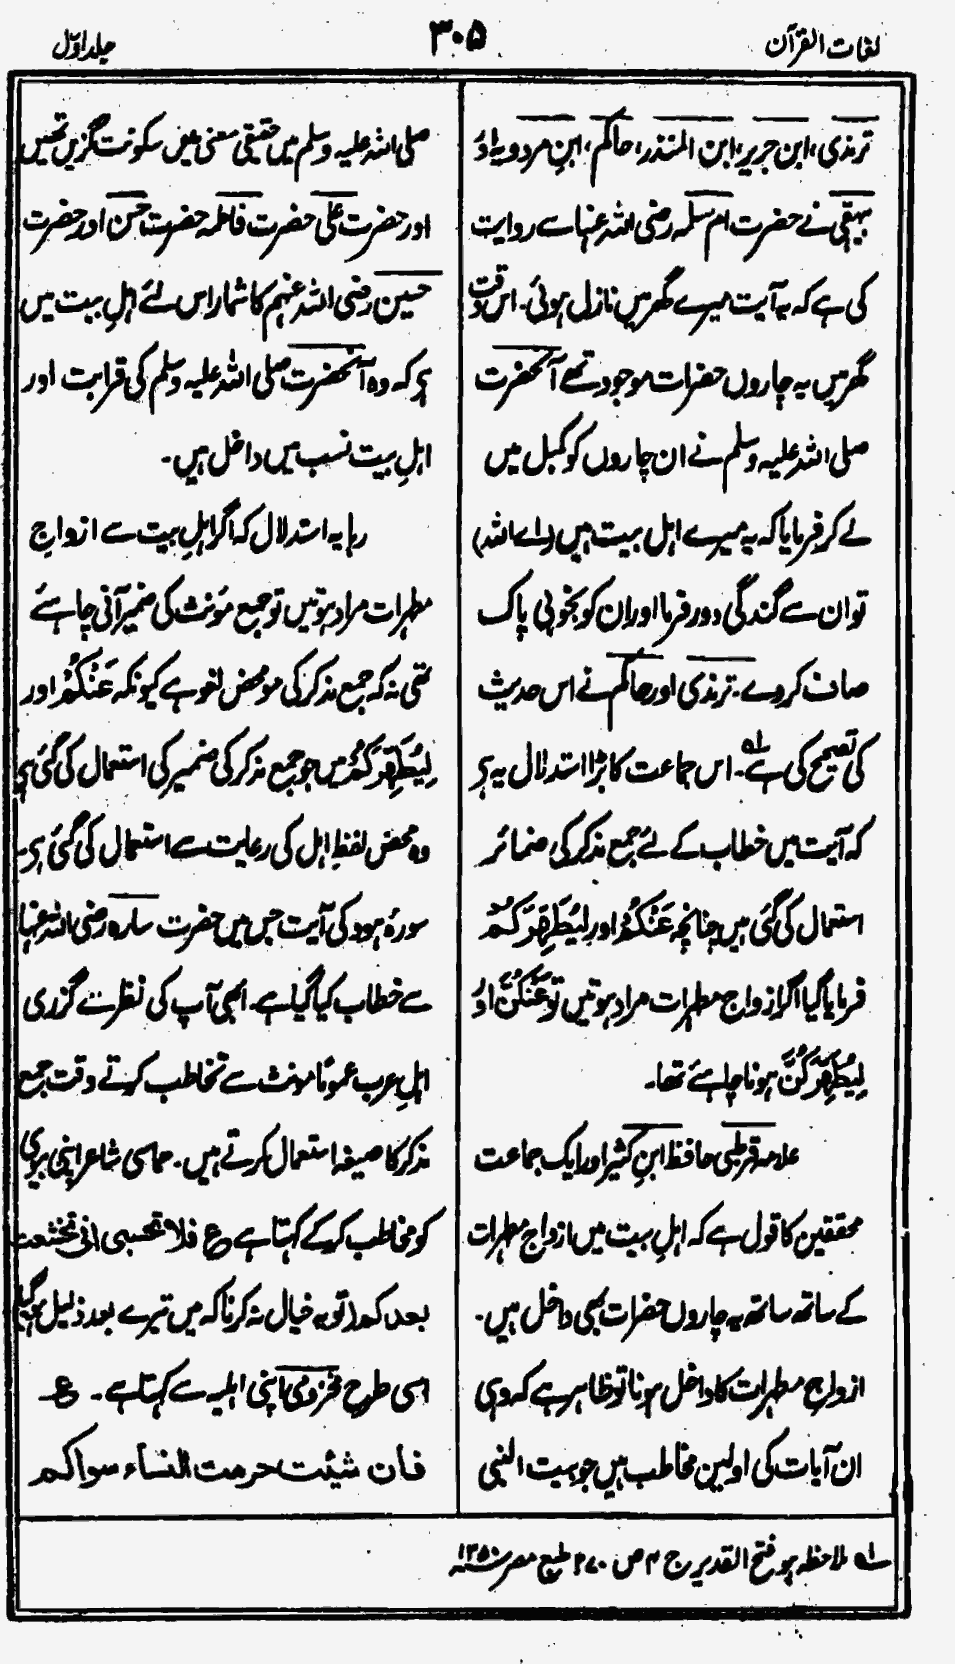 لغات القرآن
۳۰۵
جلد اوّل
ترمذی، ابن جریر، ابن المنذر، حاکم، ابنِ مردویہ اور
بیہقی نے حضرت ام سلمہ رضی اللہ عنہا سے روایت
کی ہے کہ یہ آیت میرے گھر میں نازل ہوئی۔ اس وقت
گھر میں یہ چاروں حضرات موجود تھے آنحضرت
صلی اللہ علیہ وسلم نے ان چاروں کو کمبل میں
لے کر فرمایا کہ یہ میرے اہل بیت ہیں (اے اللہ)
تو ان سے گندگی دور فرما اور ان کو بخوبی پاک
صاف کر دے۔ ترمذی اور حاکم نے اس حدیث
کی تصیح کی ہے لہ۔ اس جماعت کا بڑا استدلال یہ ہے
کہ آیت میں خطاب کے لئے جمع مذکر کی ضمائر
استعمال کی گئی ہیں چنانچہ عَنْكُمُ اور لِيُطَهِّرَكُمْ
فرمایا گیا اگر ازواج مطہرات مراد ہوتیں تو عَنْكُنَّ اور
لِيُطَهِّرَكُنَّ ہونا چاہئے تھا۔
علامہ قرطبی حافظ ابنِ کثیر اور ایک جماعت
محققین کا قول ہے کہ اہلِ بیت میں ازواج مطہرات
کے ساتھ ساتھ یہ چاروں حضرات بھی داخل ہیں۔
ازواج مطہرات کا داخل ہونا تو ظاہر ہے کہ وہی
ان آیات کی اولین مخاطب ہیں جو بیت النبی
صلی اللہ علیہ وسلم میں حقیقی معنی میں سکونت گزیں تھیں
اور حضرت علی حضرت فاطمہ حضرت حسن اور حضرت
حسین رضی اللہ عنہم کا شمار اس لئے اہلِ بیت میں
ہے کہ وہ آنحضرت صلی اللہ علیہ وسلم کی قرابت اور
اہلِ بیت نسب میں داخل ہیں۔
رہا یہ استدلال کہ اگر اہلِ بیت سے ازواجِ
مطہرات مراد ہوتیں تو جمع مؤنث کی ضمیر آنی چاہئے
تھی نہ کہ جمع مذکر کی سو محض لغو ہے کیونکہ عَنْكُمُ اور
لِيُطَهِّرَكُمْ میں جو جمع مذکر کی ضمیر کی استعمال کی گئی ہے
وہ محض لفظِ اہل کی رعایت سے استعمال کی گئی ہے۔
سورۂ ہود کی آیت جس میں حضرت سارہ رضی اللہ عنہا
سے خطاب کیا گیا ہے۔ ابھی آپ کی نظر سے گزری
اہلِ عرب عموماً مونث سے تخاطب کرتے وقت جمع
مذکر کا صیغہ استعمال کرتے ہیں۔ حماسی شاعر اپنی بیوی
کو مخاطب کر کے کہتا ہے ع فلا تحسبی انی تخشعت
بعدکم (تو یہ خیال نہ کرنا کہ میں تیرے بعد ذلیل ہو گیا
اسی طرح مخزومی اپنی اہلیہ سے کہتا ہے۔ ع
فان شئت حرمت النساء سواکم
لہ ملاحظہ ہو فتح القدیر ج ۴ ص ۲۷۰ طبع مصر ۱۳۵۰ھ